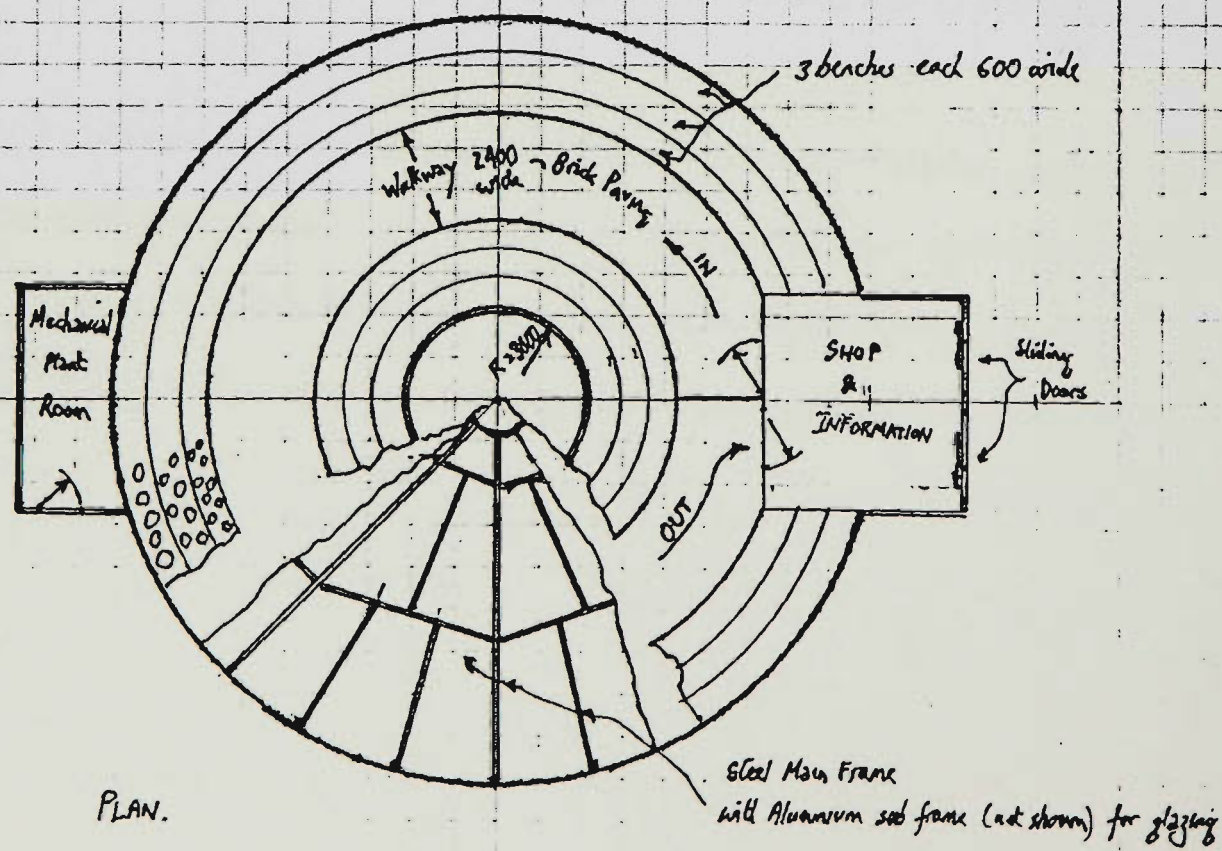 3 benches each 600 wide
Walkway 2400 - Brick Paving
wide
IN
Mechanical
Plant
Room
SHOP
&
INFORMATION
Sliding
Doors
OUT
Steel Main Frame
with Aluminium sub frame (not shown) for glazing
PLAN.